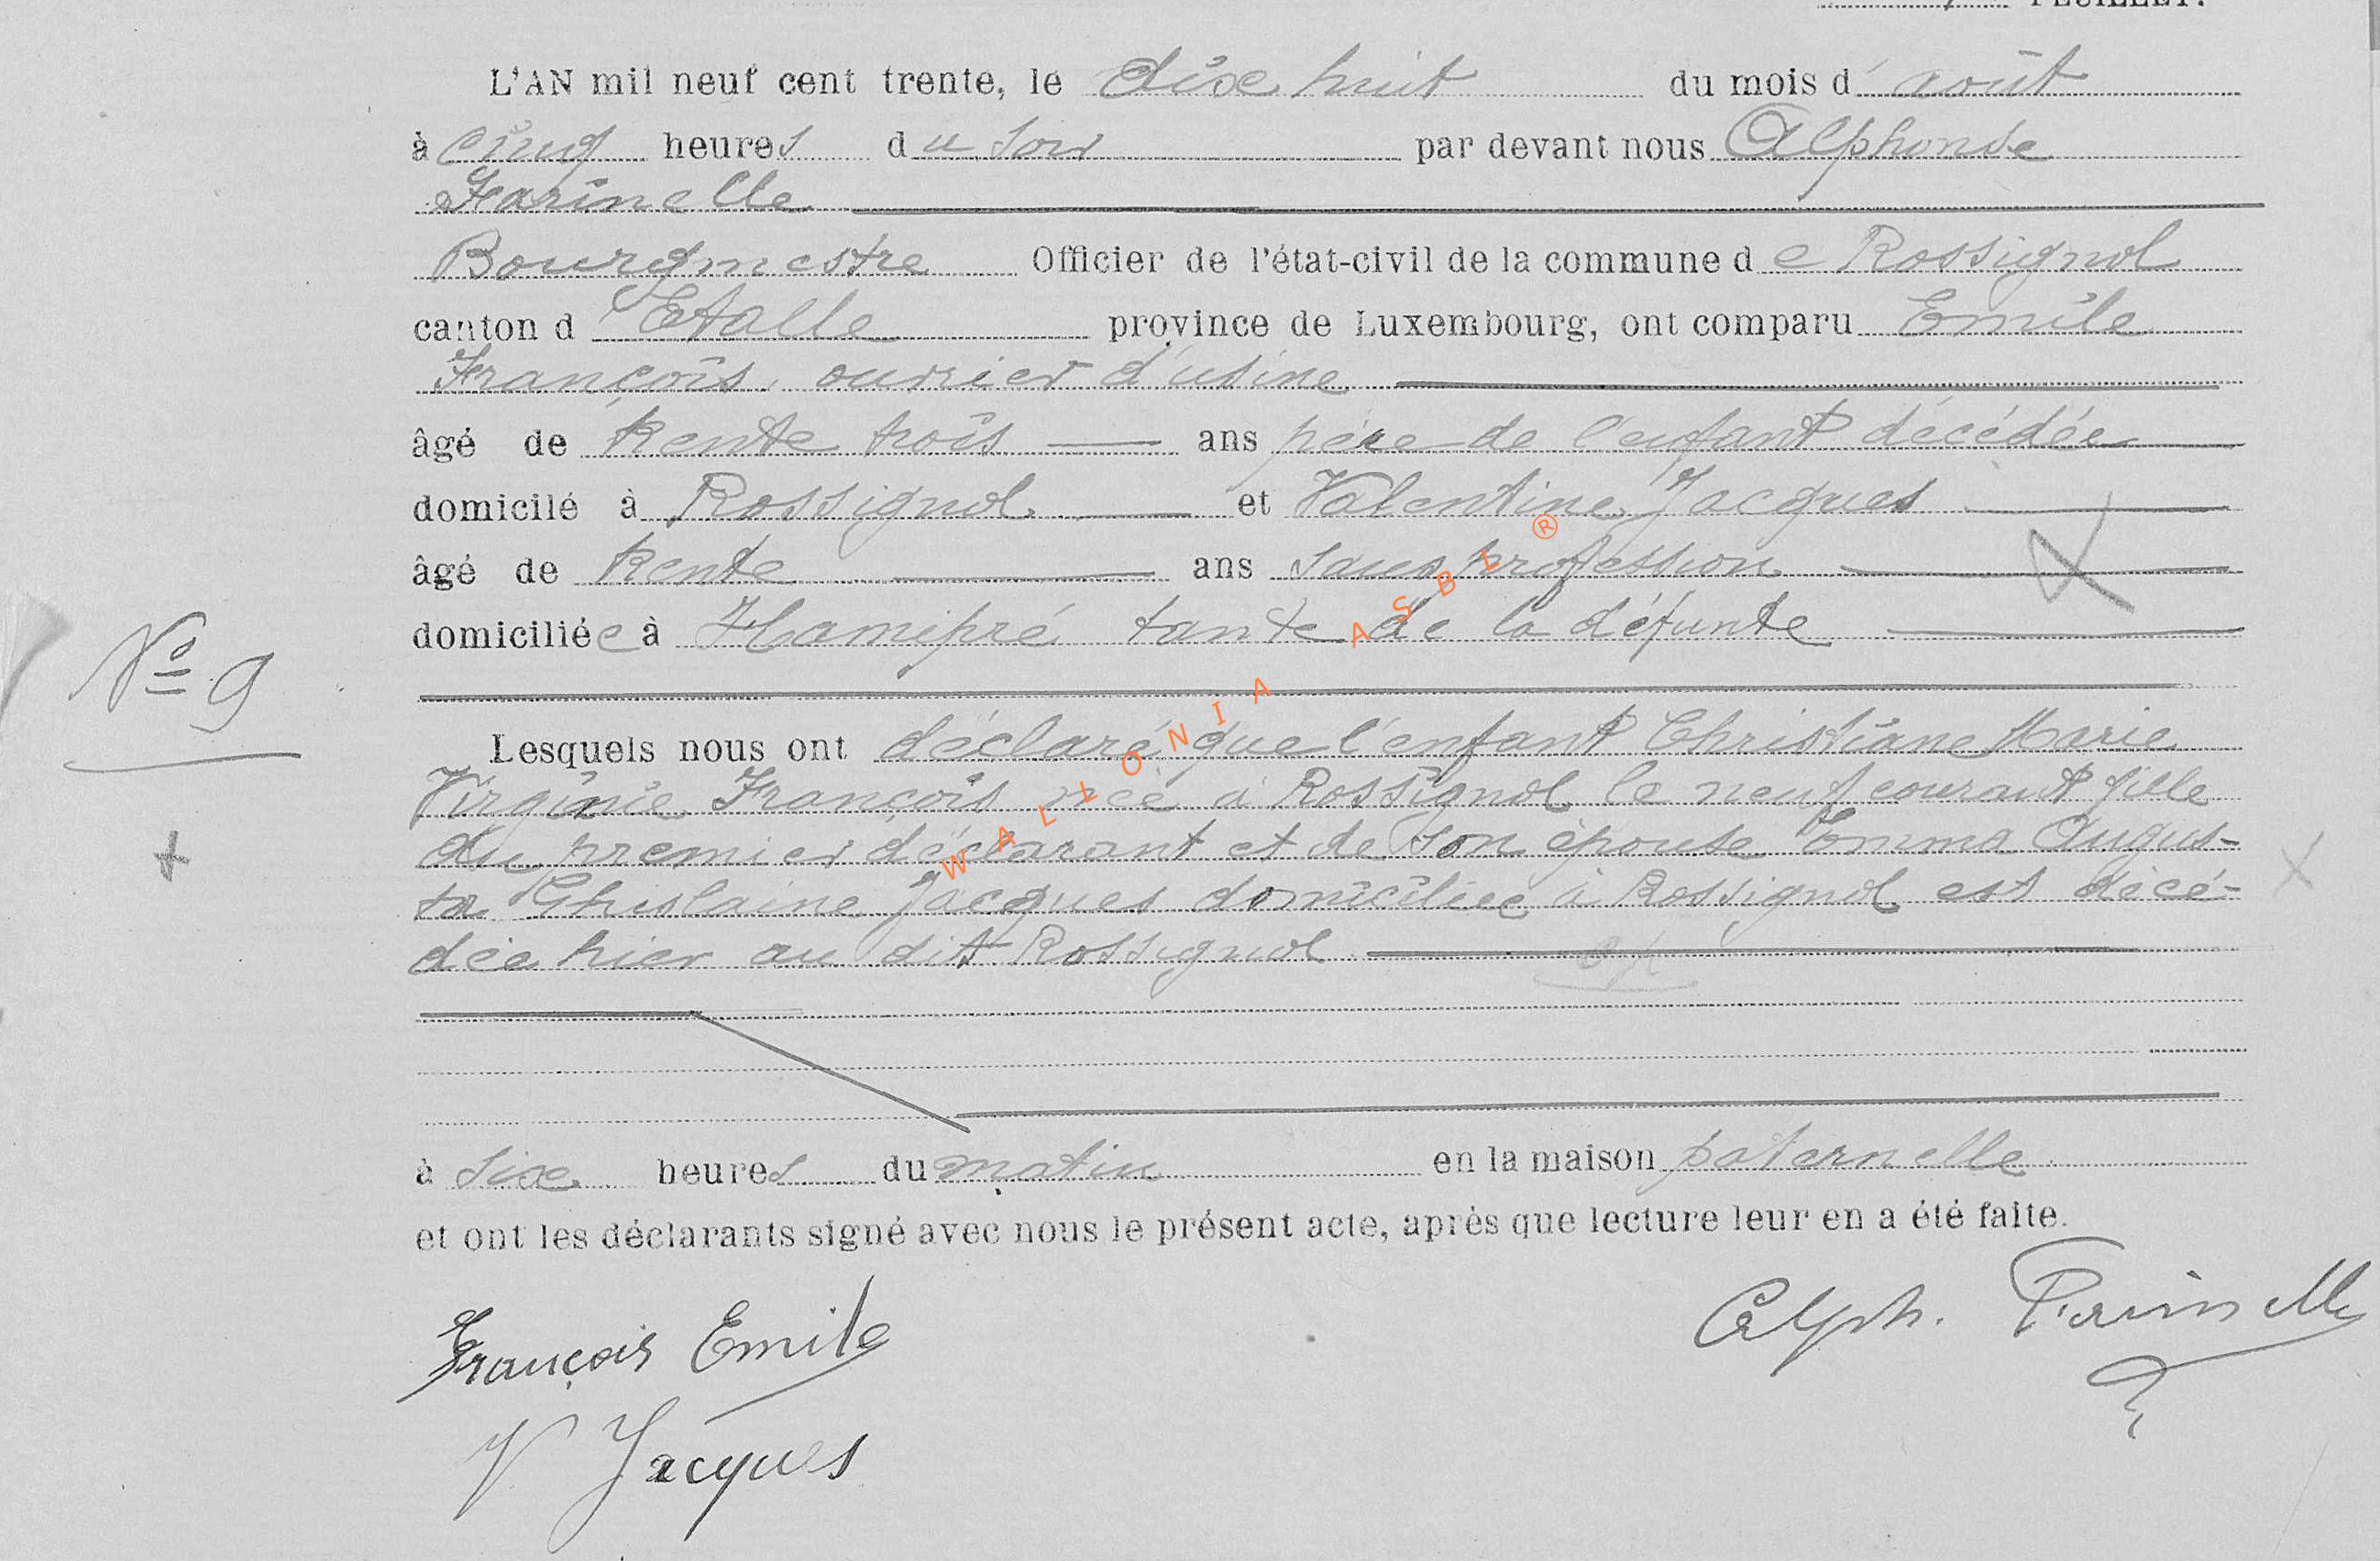 FEUILLET.
L'AN mil neuf cent trente, le dixe huit du mois d'août
à cinq heures du soir par devant nous Alphonse
Farinelle
Bourgmestre Officier de l'état-civil de la commune de Rossignol
canton d'Etalle province de Luxembourg, ont comparu Emile
François, ouvrier d'usine
âgé de trente trois ans père de l'enfant décédée
domicilé à Rossignol et Valentine Jacques
âgé de trente ans sans profession
domiciliée à Hamipré tante de la défunte
No 9
Lesquels nous ont déclaré que l'enfant Christiane Marie
Virginie François née à Rossignol le neuf courant fille
du premier déclarant et de son épouse Emma Augus-
ta Ghislaine Jacques domiciliée à Rossignol est décé-
dée hier au dit Rossignol
à sixe heures du matin en la maison paternelle
et ont les déclarants signé avec nous le présent acte, après que lecture leur en a été faite.
François Emile
Alph. Farinelle
V Jacques
WALLONIA ASBL ®